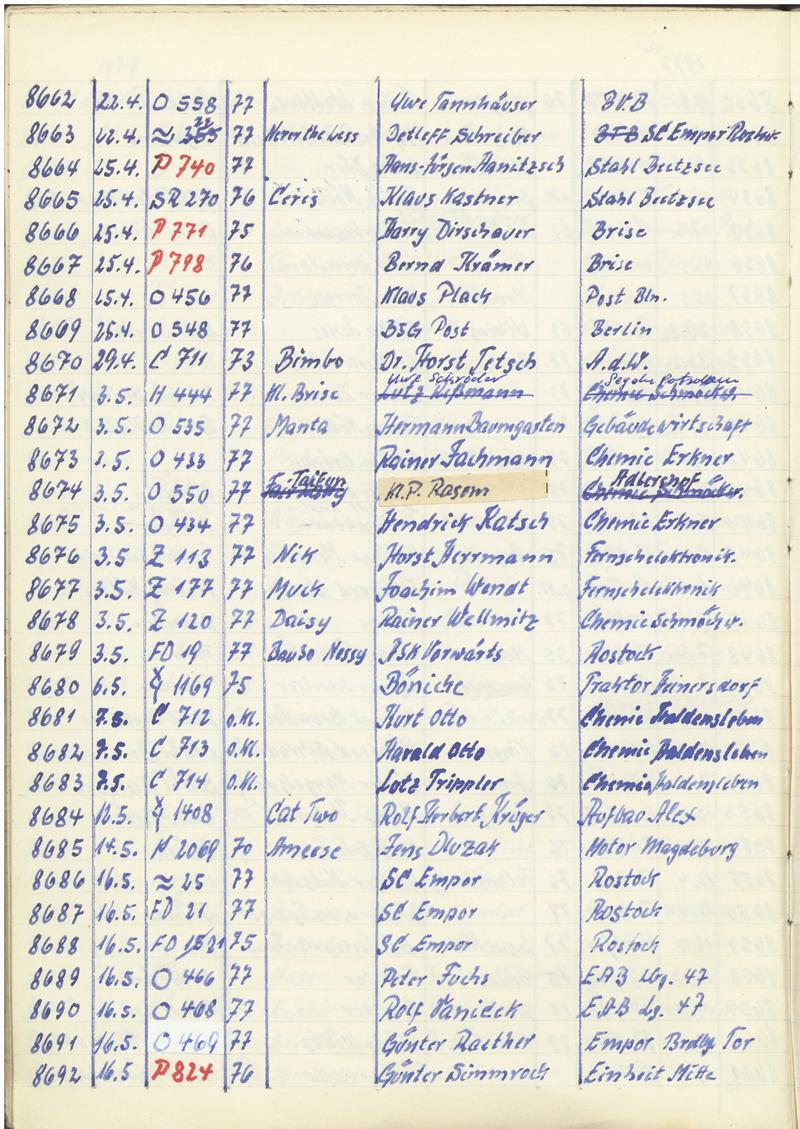 8662 22.4. O 558 77 Uwe Tannhäuser BVB
8663 22.4. ≈ 77 Nevertheless Detleff Schreiber SC Empor Rostock
8664 25.4. P 740 77 Hans-Jürgen Hanitzsch Stahl Beetzsee
8665 25.4. SR 270 76 Ceres Klaus Kastner Stahl Beetzsee
8666 25.4. P 771 75 Harry Dirschauer Brise
8667 25.4. P 798 76 Bernd Krämer Brise
8668 25.4. O 456 77 Klaus Plack Post Bln.
8669 25.4. O 548 77 BSG Post Berlin
8670 29.4. C 711 73 Bimbo Dr. Horst Jetsch A.d.W.
Uwe Schröder Segeln Potsdam
8671 3.5. H 444 77 Kl. Brise Lutz Rißmann Chemie Schmöckw.
8672 3.5. O 535 77 Manta Hermann Baumgarten Gebäudewirtschaft
8673 3.5. O 433 77 Rainer Fachmann Chemie Erkner
Taifun Adlershof
8674 3.5. O 550 77 Kl.P. Rasem Chemie Schmöckw.
8675 3.5. O 434 77 Hendrick Katsch Chemie Erkner
8676 3.5. Z 113 77 Nik Horst Herrmann Fernsehelektronik.
8677 3.5. Z 177 77 Muck Joachim Wendt Fernsehelektronik
8678 3.5. Z 120 77 Daisy Rainer Wellmitz Chemie Schmöckw.
8679 3.5. FD 19 77 Nessy ASK Vorwärts Rostock
8680 6.5. 1169 75 Bönicke Traktor Heinersdorf
8681 7.5. C 712 o.Kl. Kurt Otto Chemie Haldensleben
8682 7.5. C 713 o.Kl. Harald Otto Chemie Haldensleben
8683 7.5. C 714 o.Kl. Lutz Trippler Chemie Haldensleben
8684 12.5. 1408 Cat Two Rolf Herbert Krüger Aufbau Alex
8685 14.5. M 2069 70 Ameese Jens Dluzak Motor Magdeburg
8686 16.5. ≈ 25 77 SC Empor Rostock
8687 16.5. FD 21 77 SC Empor Rostock
8688 16.5. FD 1521 75 SC Empor Rostock
8689 16.5. O 466 77 Peter Fuchs EAB Lbg. 47
8690 16.5. O 468 77 Rolf Vanicek EAB Lg. 47
8691 16.5. O 469 77 Günter Raether Empor Brdbg. Tor
8692 16.5 P 824 76 Günter Simmrock Einheit Mitte